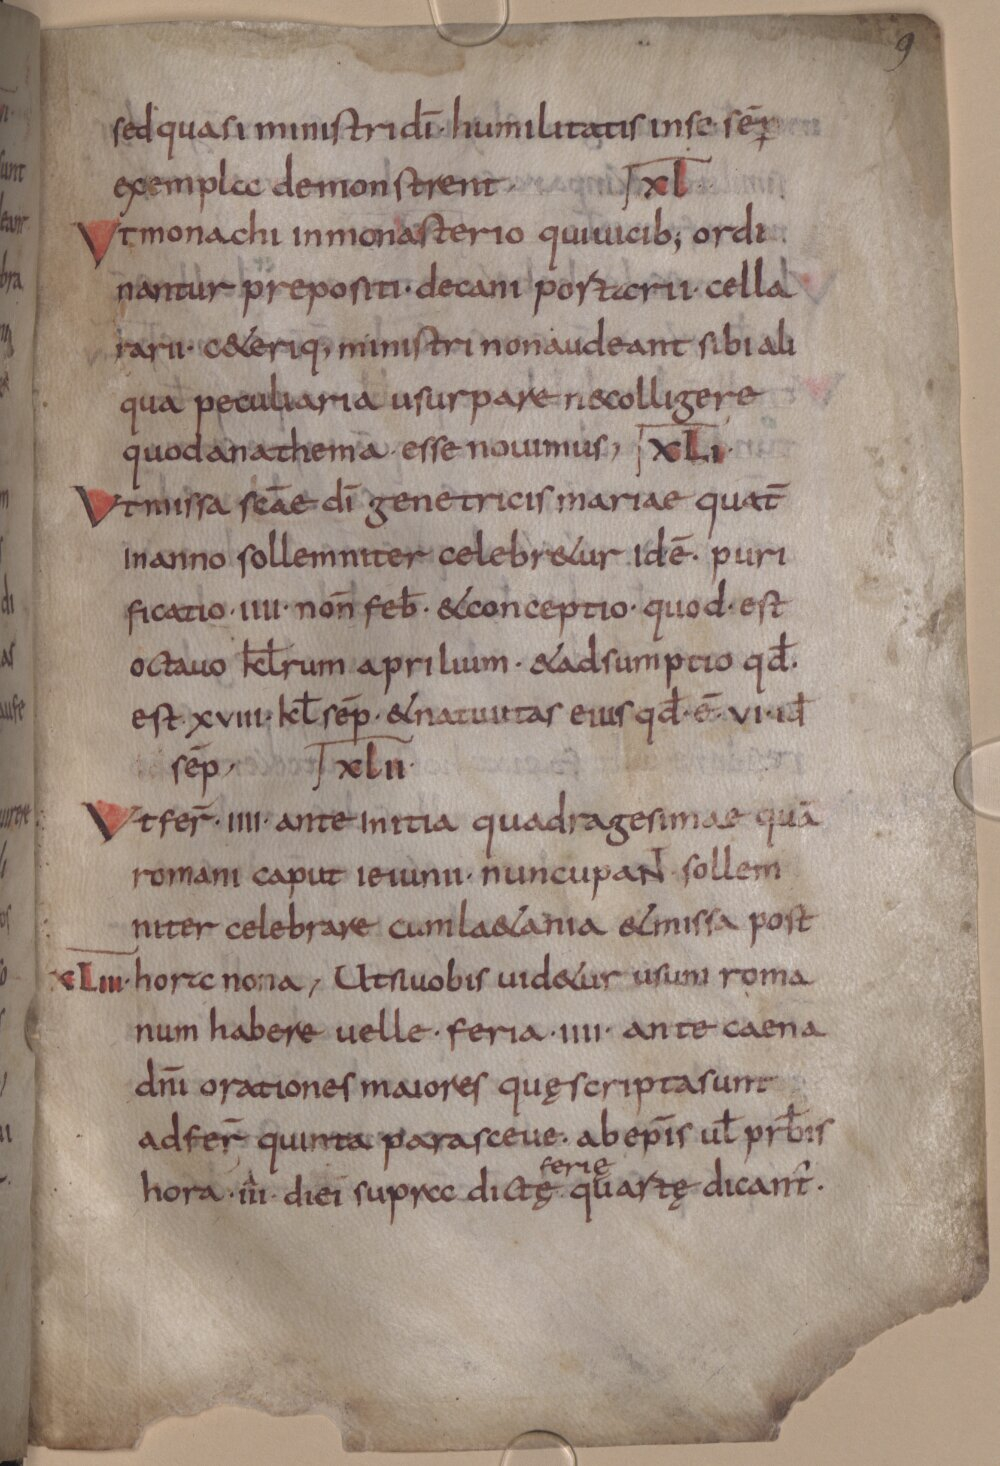 9
sed quasi ministri dī· humilitatis in se sēp
exempla demonstrent· XL
Vt monachi in monasterio qui uicib; ordi
nantur prepositi· decani portarii· cella
rarii· c&eriq; ministri non audeant sibi ali
qua peculiaria usurpare n& colligere
quod anathema· esse nouimus, XLI·
Vt missa scāe dī genetricis mariae quat̄
in anno sollemniter celebr&ur idē· puri
ficatio· IIII· non̄ feb̄· & conceptio· quod· est
octauo kl̄rum aprilium· & adsumptio qd̄·
est· XVIII· kl̄ sēp· & natiuitas eius qd̄· ē· VI· id̄
sēp, XLII·
Vt fer̄· IIII· ante initia quadragesimae quā
romani caput ieiunii· nuncupaNT sollem
niter celebrare cum la&ania & missa post
XLIII· hora nona, Ut si uobis uid&ur usum roma
num habere uelle· feria· IIII· ante caena
dn̄i orationes maiores quę scripta sunt
ad fer̄ quinta parasceue· ab ep̄is ul̄ prb̄is
ferię
hora· III· diei supra dictę quartę dicant̄·